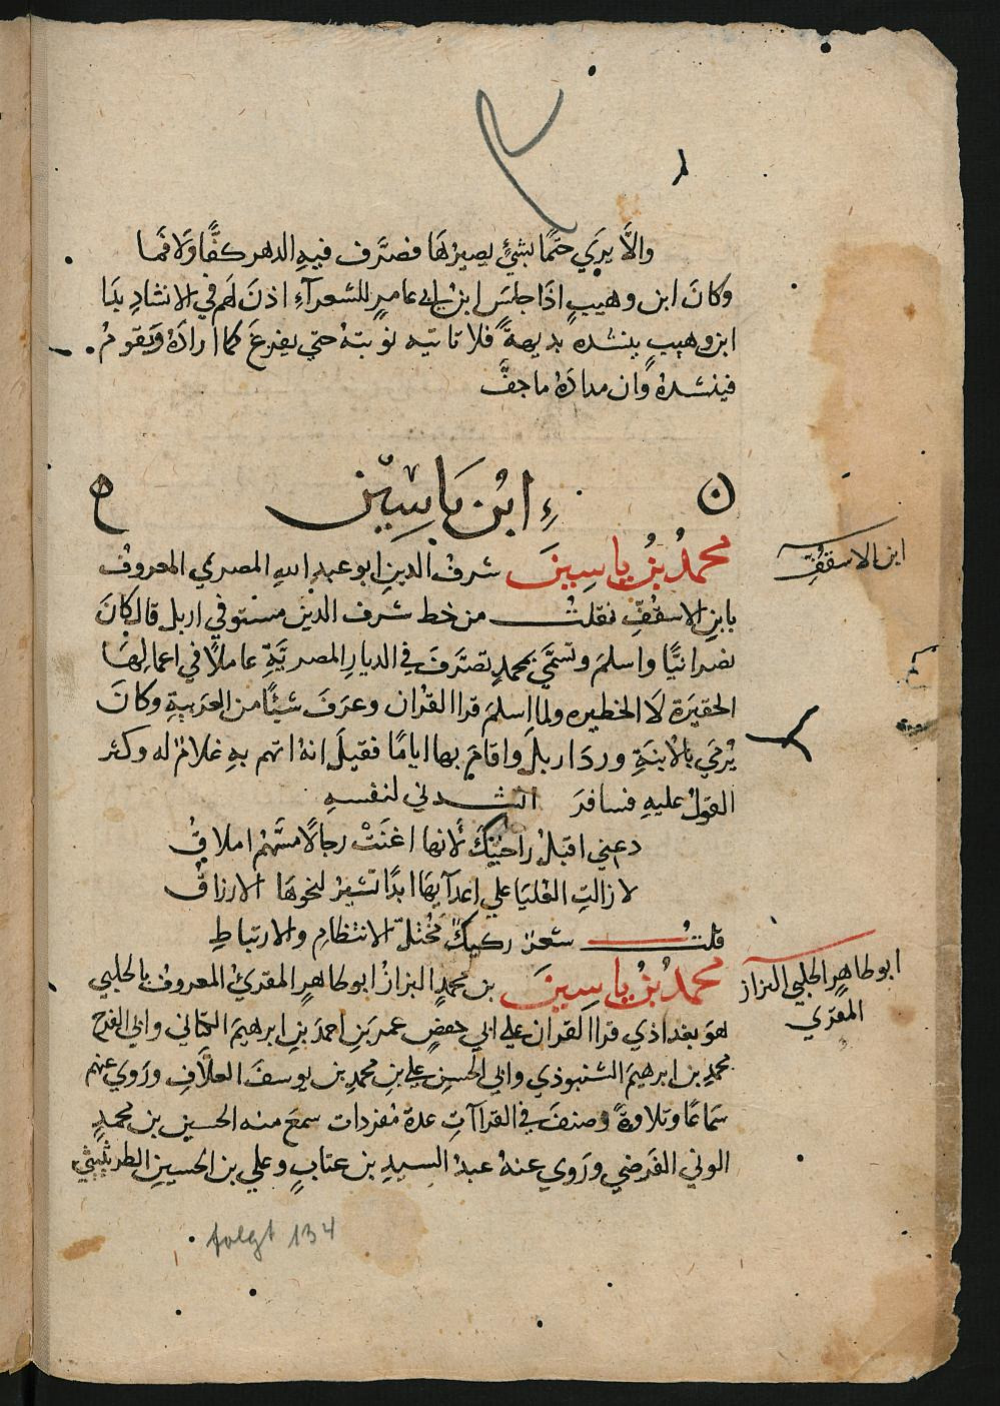 والَّا يري حتمًا بشيٍّ يصيرهَا فصَرَّف فيهِ الدهر كفًّا وَلَا فمَا
وكانَ ابن وهيبٍ اذَا جلسَ ابن ابي عامرٍ للشعرآءِ اذنَ لهم في الانشادِ بدَا
ابن وهيبٍ ينشده بديهةً فلا تاتيه نوبتهُ حتي يفرغَ مما ارادَهُ وَيقومُ
فينشدهُ وان مدادَهُ ما جفَّ
ابْن يَاسِيْن
محمدُ بنُ ياسِينَ شرفُ الدينِ ابو عبدِ اللهِ المصري المعروفُ
ابن الاسقفِّ
بابنِ الاسقُفِّ نقلتُ من خط شرف الدين مستوفي اربل قال كانَ
نصرانيًّا واسلمَ وتسمَّي بمحمدٍ تصَرَّفَ في الديارِ المصريَّةِ عاملًا في اعمالِهَا
الحقيرَة لَا الخطيره ولما اسلمَ قرا القرْان وعرَفَ شيئًا من العَربيةِ وكانَ
يُرْمَي بالابنَةِ وردَ اربلَ واقامَ بها ايامًا فقيلَ انهُ اتهم بهِ غلامٌ له وكثر
القولُ عليهِ فسافرَ انشدني لنفسهِ
دعني اقبلُ راحتيْكَ لأنها اغنَتْ رجالًا مسَّهُم املاقُ
لا زالتِ العُليَا علي اعدآيهَا ابدًا تشيرُ لنحوهَا الارزاقُ
قلتُ شعرٌ ركيكٌ مُختلّ الانتظامِ والارتباطِ
محمدُ بنُ ياسِينَ بن محمدٍ البزازُ ابو طاهرٍ المقريُ المعروفُ بالحلبي
ابو طاهرٍ الحلبي البزاز
المقري
هوَ بغداذي قرا القران علي ابي حفصٍ عمرَ بنِ احمدَ بنِ ابرهيمَ الكتاني وابي الفرج
محمدِ بن ابرهيمَ الشنبوذي وابي الحسينِ علي بنِ محمدِ بن يوسفَ العلَّافِ ورَوي عنهم
سَماعًا وتلاوةً وصنفَ في القراآتِ عدةَ مُفردات سمعَ منه الحسين بن محمدٍ
الوني الفَرضي ورَوي عنهُ عبدُ السيدِ بن عتابٍ وعلي بن الحسينِ الطريثيثي
folgt 134